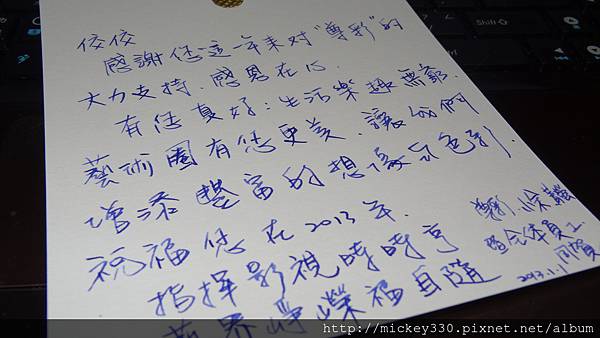 佼佼
感謝您這一年来对“尊彩”的
大力支持.感恩在心.
有您真好:生活樂趣無窮.
藝術圈有您更美.讓我們
增添豐富的想像與色彩.
祝福您在2013年.
指揮影視時時亨
藝界崢嶸福自隨
尊彩
暨全体員工
同賀
2013.1.1
Shift
http://mickey330.pixnet.net/album